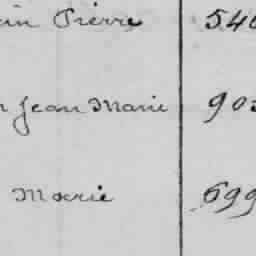 Pierre 540
Jean Marie 903
Marie 699